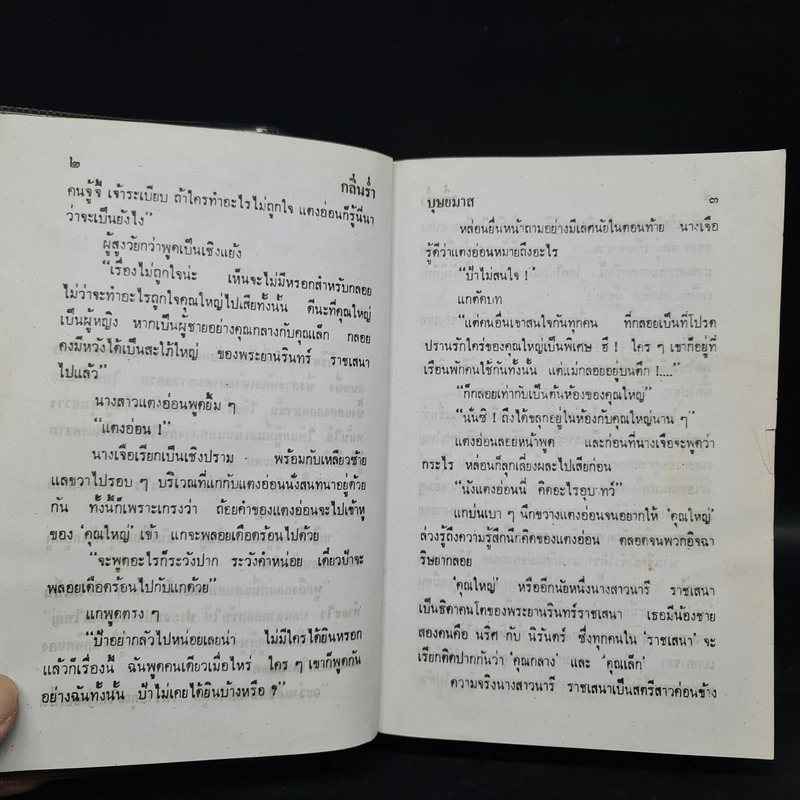 ๒
กลิ่นร่ำ
คนจู้จี้ เจ้าระเบียบ ถ้าใครทำอะไรไม่ถูกใจ แตงอ่อนก็รู้นี่นา
ว่าจะเป็นยังไง”
ผู้สูงวัยกว่าพูดเป็นเชิงแย้ง
“เรื่องไม่ถูกใจน่ะ เห็นจะไม่มีหรอกสำหรับกลอย
ไม่ว่าจะทำอะไรถูกใจคุณใหญ่ไปเสียทั้งนั้น ดีนะที่คุณใหญ่
เป็นผู้หญิง หากเป็นผู้ชายอย่างคุณกลางกับคุณเล็ก กลอย
คงมีหวังได้เป็นสะใภ้ใหญ่ ของพระยานรินทร์ ราชเสนา
ไปแล้ว”
นางสาวแตงอ่อนพูดยิ้ม ๆ
“แตงอ่อน !”
นางเจือเรียกเป็นเชิงปราม พร้อมกับเหลียวซ้าย
แลขวาไปรอบ ๆ บริเวณที่แกกับแตงอ่อนนั่งสนทนาอยู่ด้วย
กัน ทั้งนี้ก็เพราะเกรงว่า ถ้อยคำของแตงอ่อนจะไปเข้าหู
ของ ‘คุณใหญ่’ เข้า แกจะพลอยเดือดร้อนไปด้วย
“จะพูดอะไรก็ระวังปาก ระวังคำหน่อย เดี๋ยวป้าจะ
พลอยเดือดร้อนไปกับแกด้วย”
แกพูดตรง ๆ
“ป้าอย่ากลัวไปหน่อยเลยน่า ไม่มีใครได้ยินหรอก
แล้วก็เรื่องนี้ ฉันพูดคนเดียวเมื่อไหร่ ใคร ๆ เขาก็พูดกัน
อย่างฉันทั้งนั้น ป้าไม่เคยได้ยินบ้างหรือ ?”
บุษยมาส
๓
หล่อนยื่นหน้าถามอย่างมีเลศนัยในตอนท้าย นางเจือ
รู้ดีว่าแตงอ่อนหมายถึงอะไร
“ป้าไม่สนใจ !”
แกตัดบท
“แต่คนอื่นเขาสนใจกันทุกคน ที่กลอยเป็นที่โปรด
ปรานรักใคร่ของคุณใหญ่เป็นพิเศษ ฮึ ! ใคร ๆ เขาก็อยู่ที่
เรือนพักคนใช้กันทั้งนั้น แต่แม่กลอยอยู่บนตึก !....”
“ก็กลอยเท่ากับเป็นต้นห้องของคุณใหญ่”
“นั่นซี ! ถึงได้ขลุกอยู่ในห้องกับคุณใหญ่นาน ๆ”
แตงอ่อนลอยหน้าพูด และก่อนที่นางเจือจะพูดว่า
กระไร หล่อนก็ลุกเลี่ยงผละไปเสียก่อน
“นังแตงอ่อนนี่ คิดอะไรอุบาทว์”
แกบ่นเบา ๆ นึกขวางแตงอ่อนจนอยากให้ ‘คุณใหญ่’
ล่วงรู้ถึงความรู้สึกนึกคิดของแตงอ่อน ตลอดจนพวกอิจฉา
ริษยากลอย
‘คุณใหญ่’ หรืออีกนัยหนึ่งนางสาวนารี ราชเสนา
เป็นธิดาคนโตของพระยานรินทร์ราชเสนา เธอมีน้องชาย
สองคนคือ นริศ กับ นิรันดร์ ซึ่งทุกคนใน ‘ราชเสนา’ จะ
เรียกติดปากกันว่า ‘คุณกลาง’ และ ‘คุณเล็ก’
ความจริงนางสาวนารี ราชเสนาเป็นสตรีสาวค่อนข้าง